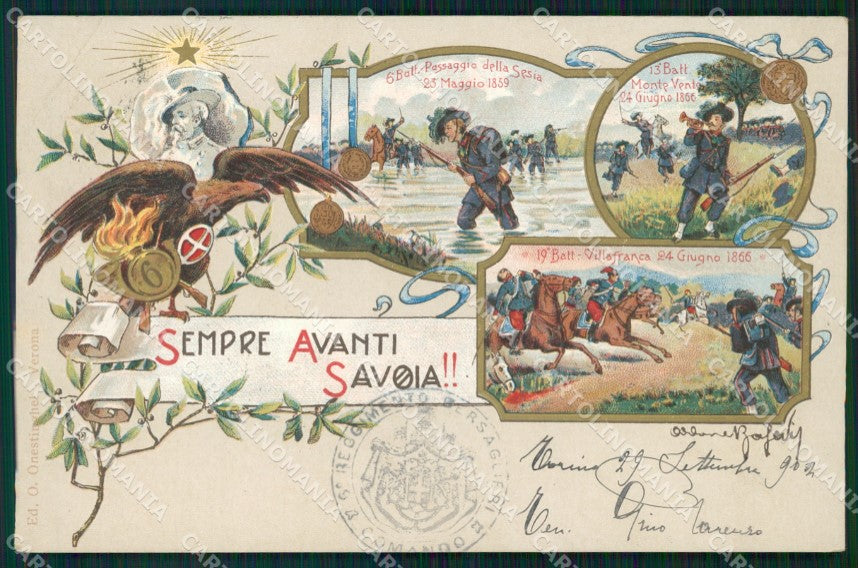 6º Batt. Passaggio della Sesia
23 Maggio 1859
13º Batt.
Monte Vento
24 Giugno 1866
19º Batt. - Villafranca 24 Giugno 1866
6
SEMPRE AVANTI
SAVOIA!!
Ed. O. Onestinghel Verona
REGGIMENTO BERSAGLIERI
COMANDO
Torino 29 Settembre 902
Ten. Gino
CARTOLINOMANIA